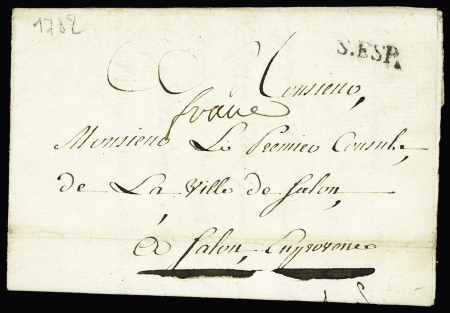 1782
S.ESP.
Monsieur,
franc
Monsieur Le Premier Consul,
de La Ville de Salon,
à Salon, Enprovence